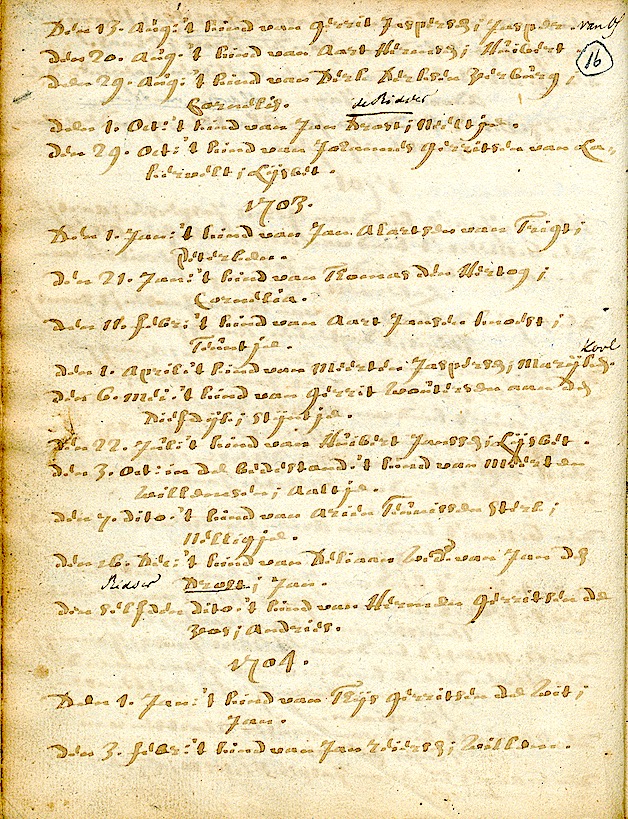 Den 13. Aug: 't kind van Gerrit Jaspersz; Jasper. van
16
den 20. Aug: 't kind van Aart Hermsz; Huibert
den 29. Aug: 't kind van Derk Derksen Verburg;
Cornelis. de Ridder
den 1. Oct: 't kind van Jan Drost; Neeltje.
den 29. Oct: 't kind van Johannes Gerritsen van La-
kervelt; Lijsbet.
1703.
Den 1. Jan: 't kind van Jan Alartsen van Trigt;
Peterken.
den 21. Jan: 't kind van Thomas den Hertog;
Cornelia.
den 11. Febr: 't kind van Aart Jansen knoest;
Teuntje.
Kool
den 1. April 't kind van Meerten Jaspersz; Marijken.
den 6. Mei: 't kind van Gerrit Woutersen aan den
Diefdijk; Stijntje.
den 22. Jul: 't kind van Huibert Jansse; Lijsbet.
den 3. Oct: in de bedestand: 't kind van Meerten
Willemsen; Aaltje.
den 7. dito: 't kind van Arien Teunissen Sterk;
Nelligje.
den 26. Dec: 't kind van Deliaan Wed. van Jan de
Ridder Drost; Jan.
den selfden dito: 't kind van Hermen Gerritsen de
Vos; Andries.
1704.
Den 1. Jan: 't kind van Thijs Gerritsen de Wit;
Jan.
den 3. Febr: 't kind van Jan Zeiersz; Willem.